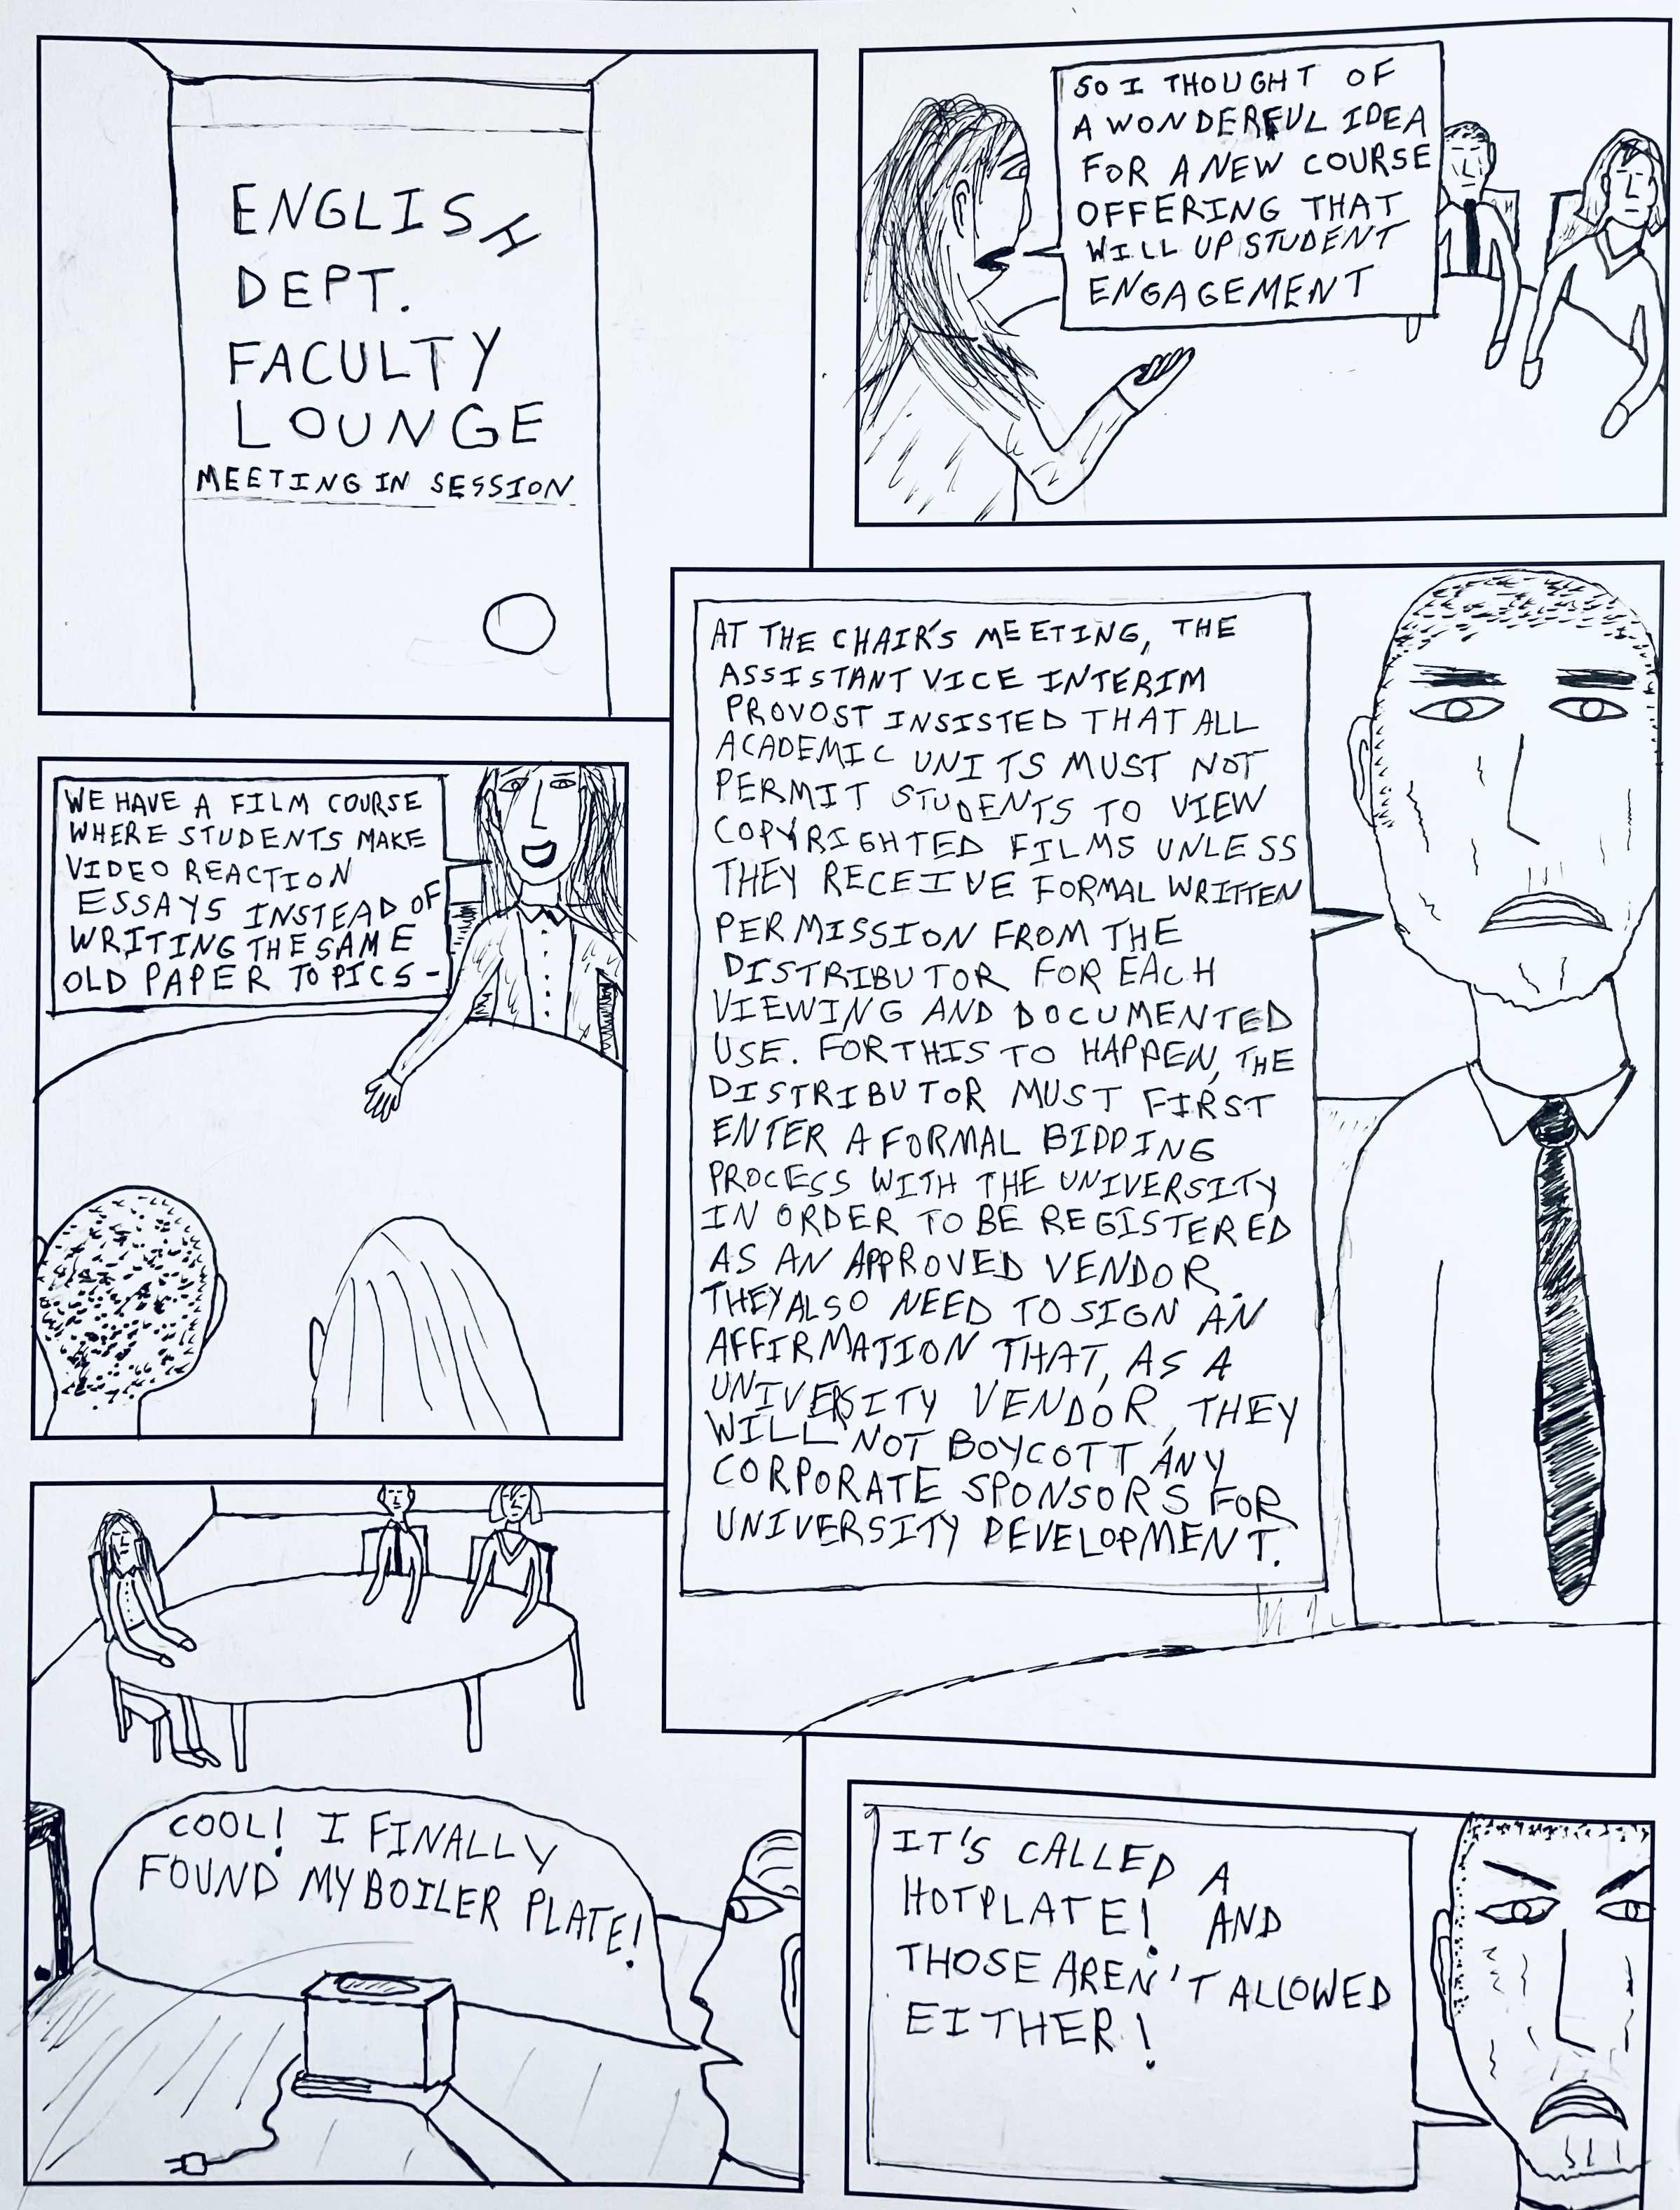 ENGLISH
DEPT.
FACULTY
LOUNGE
MEETING IN SESSION
SO I THOUGHT OF
A WONDERFUL IDEA
FOR A NEW COURSE
OFFERING THAT
WILL UP STUDENT
ENGAGEMENT
WE HAVE A FILM COURSE
WHERE STUDENTS MAKE
VIDEO REACTION
ESSAYS INSTEAD OF
WRITING THE SAME
OLD PAPER TOPICS -
AT THE CHAIR'S MEETING, THE
ASSISTANT VICE INTERIM
PROVOST INSISTED THAT ALL
ACADEMIC UNITS MUST NOT
PERMIT STUDENTS TO VIEW
COPYRIGHTED FILMS UNLESS
THEY RECEIVE FORMAL WRITTEN
PERMISSION FROM THE
DISTRIBUTOR FOR EACH
VIEWING AND DOCUMENTED
USE. FOR THIS TO HAPPEN, THE
DISTRIBUTOR MUST FIRST
ENTER A FORMAL BIDDING
PROCESS WITH THE UNIVERSITY
IN ORDER TO BE REGISTERED
AS AN APPROVED VENDOR.
THEY ALSO NEED TO SIGN AN
AFFIRMATION THAT, AS A
UNIVERSITY VENDOR, THEY
WILL NOT BOYCOTT ANY
CORPORATE SPONSORS FOR
UNIVERSITY DEVELOPMENT.
COOL! I FINALLY
FOUND MY BOILER PLATE!
IT'S CALLED A
HOTPLATE! AND
THOSE AREN'T ALLOWED
EITHER!